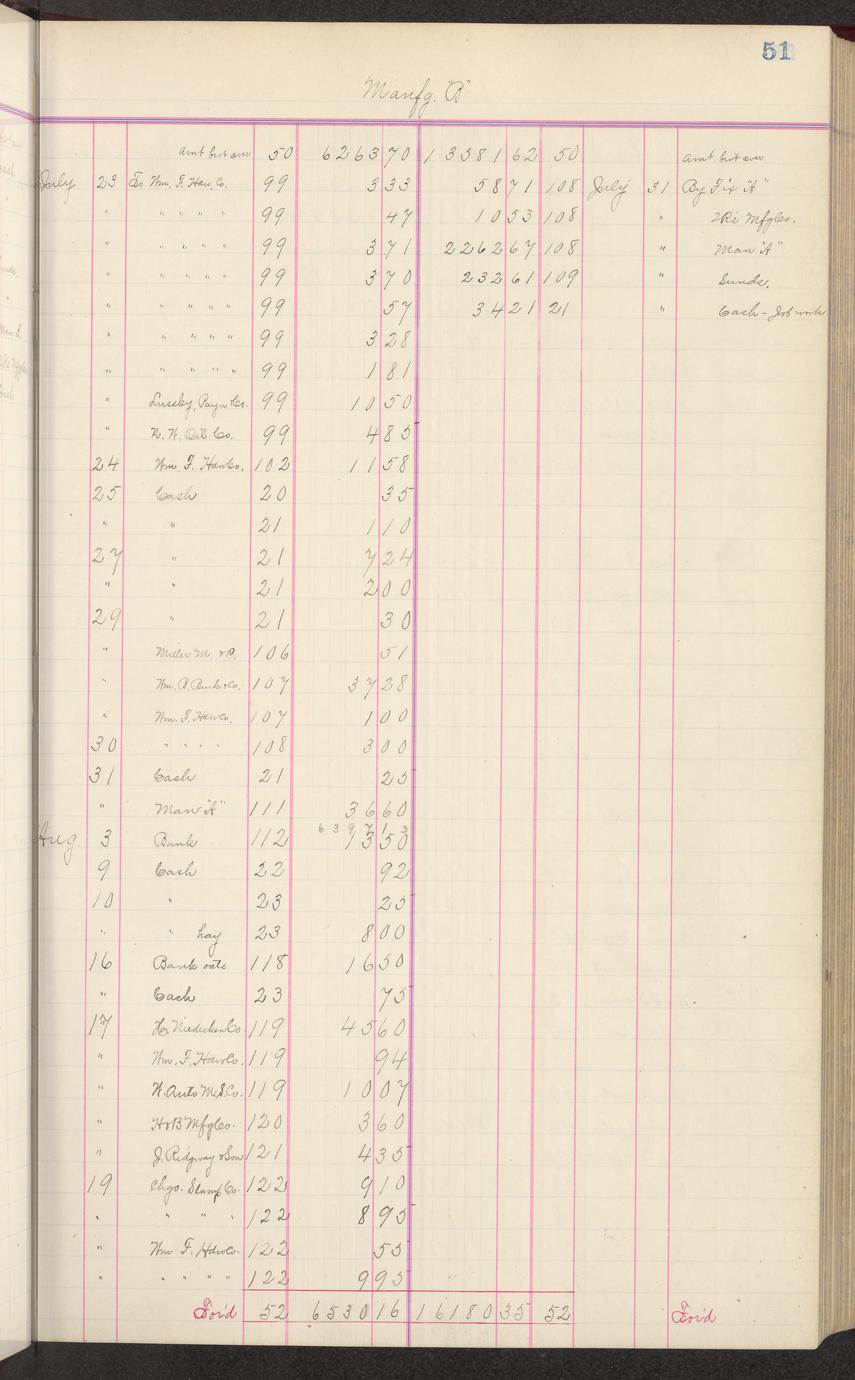 51
Manfg. "B"
amt brt over 50 6263 70 13581 62 50 amt. brt over
July 23 To Wm. F. Hdw. Co. 99 3 33 58 71 108 July 31 By Fix "A"
" " " " " 99 47 10 53 108 " Mfg Co.
" " " " " 99 3 71 2262 67 108 " Man "A"
" " " " " 99 3 70 232 61 109 " Sunds.
" " " " " 99 57 34 21 21 " Cash - Job work
" " " " " 99 3 28
" " " " " 99 1 81
" Lussky, Payn Co. 99 10 50
" N. W. Oil Co. 99 4 85
24 Wm. F. Hdw Co. 102 11 58
25 Cash 20 35
" " 21 1 10
27 " 21 7 24
" " 21 2 00
29 " 21 30
" Miller M. & P. 106 51
" Wm. B. Burk & Co. 107 37 28
" Wm. F. Hdw Co. 107 1 00
30 " " " " 108 3 00
31 Cash 21 25
" Man "A" 111 36 60
6397 13
Aug 3 Bank 112 13 50
9 Cash 22 92
10 " 23 25
" " hay 23 8 00
16 Bank oats 118 16 50
" Cash 23 75
17 H. Niedecken Co. 119 45 60
" Wm. F. Hdw Co. 119 94
" W. Auto M.S. Co. 119 10 07
" H & B Mfg Co. 120 3 60
" J. Ridgway & Son 121 4 35
19 Chgo. Stamp Co. 122 9 10
" " " " 122 8 95
" Wm F. Hdw Co. 122 55
" " " " " 122 9 95
For'd 52 6530 16 16180 35 52 For'd